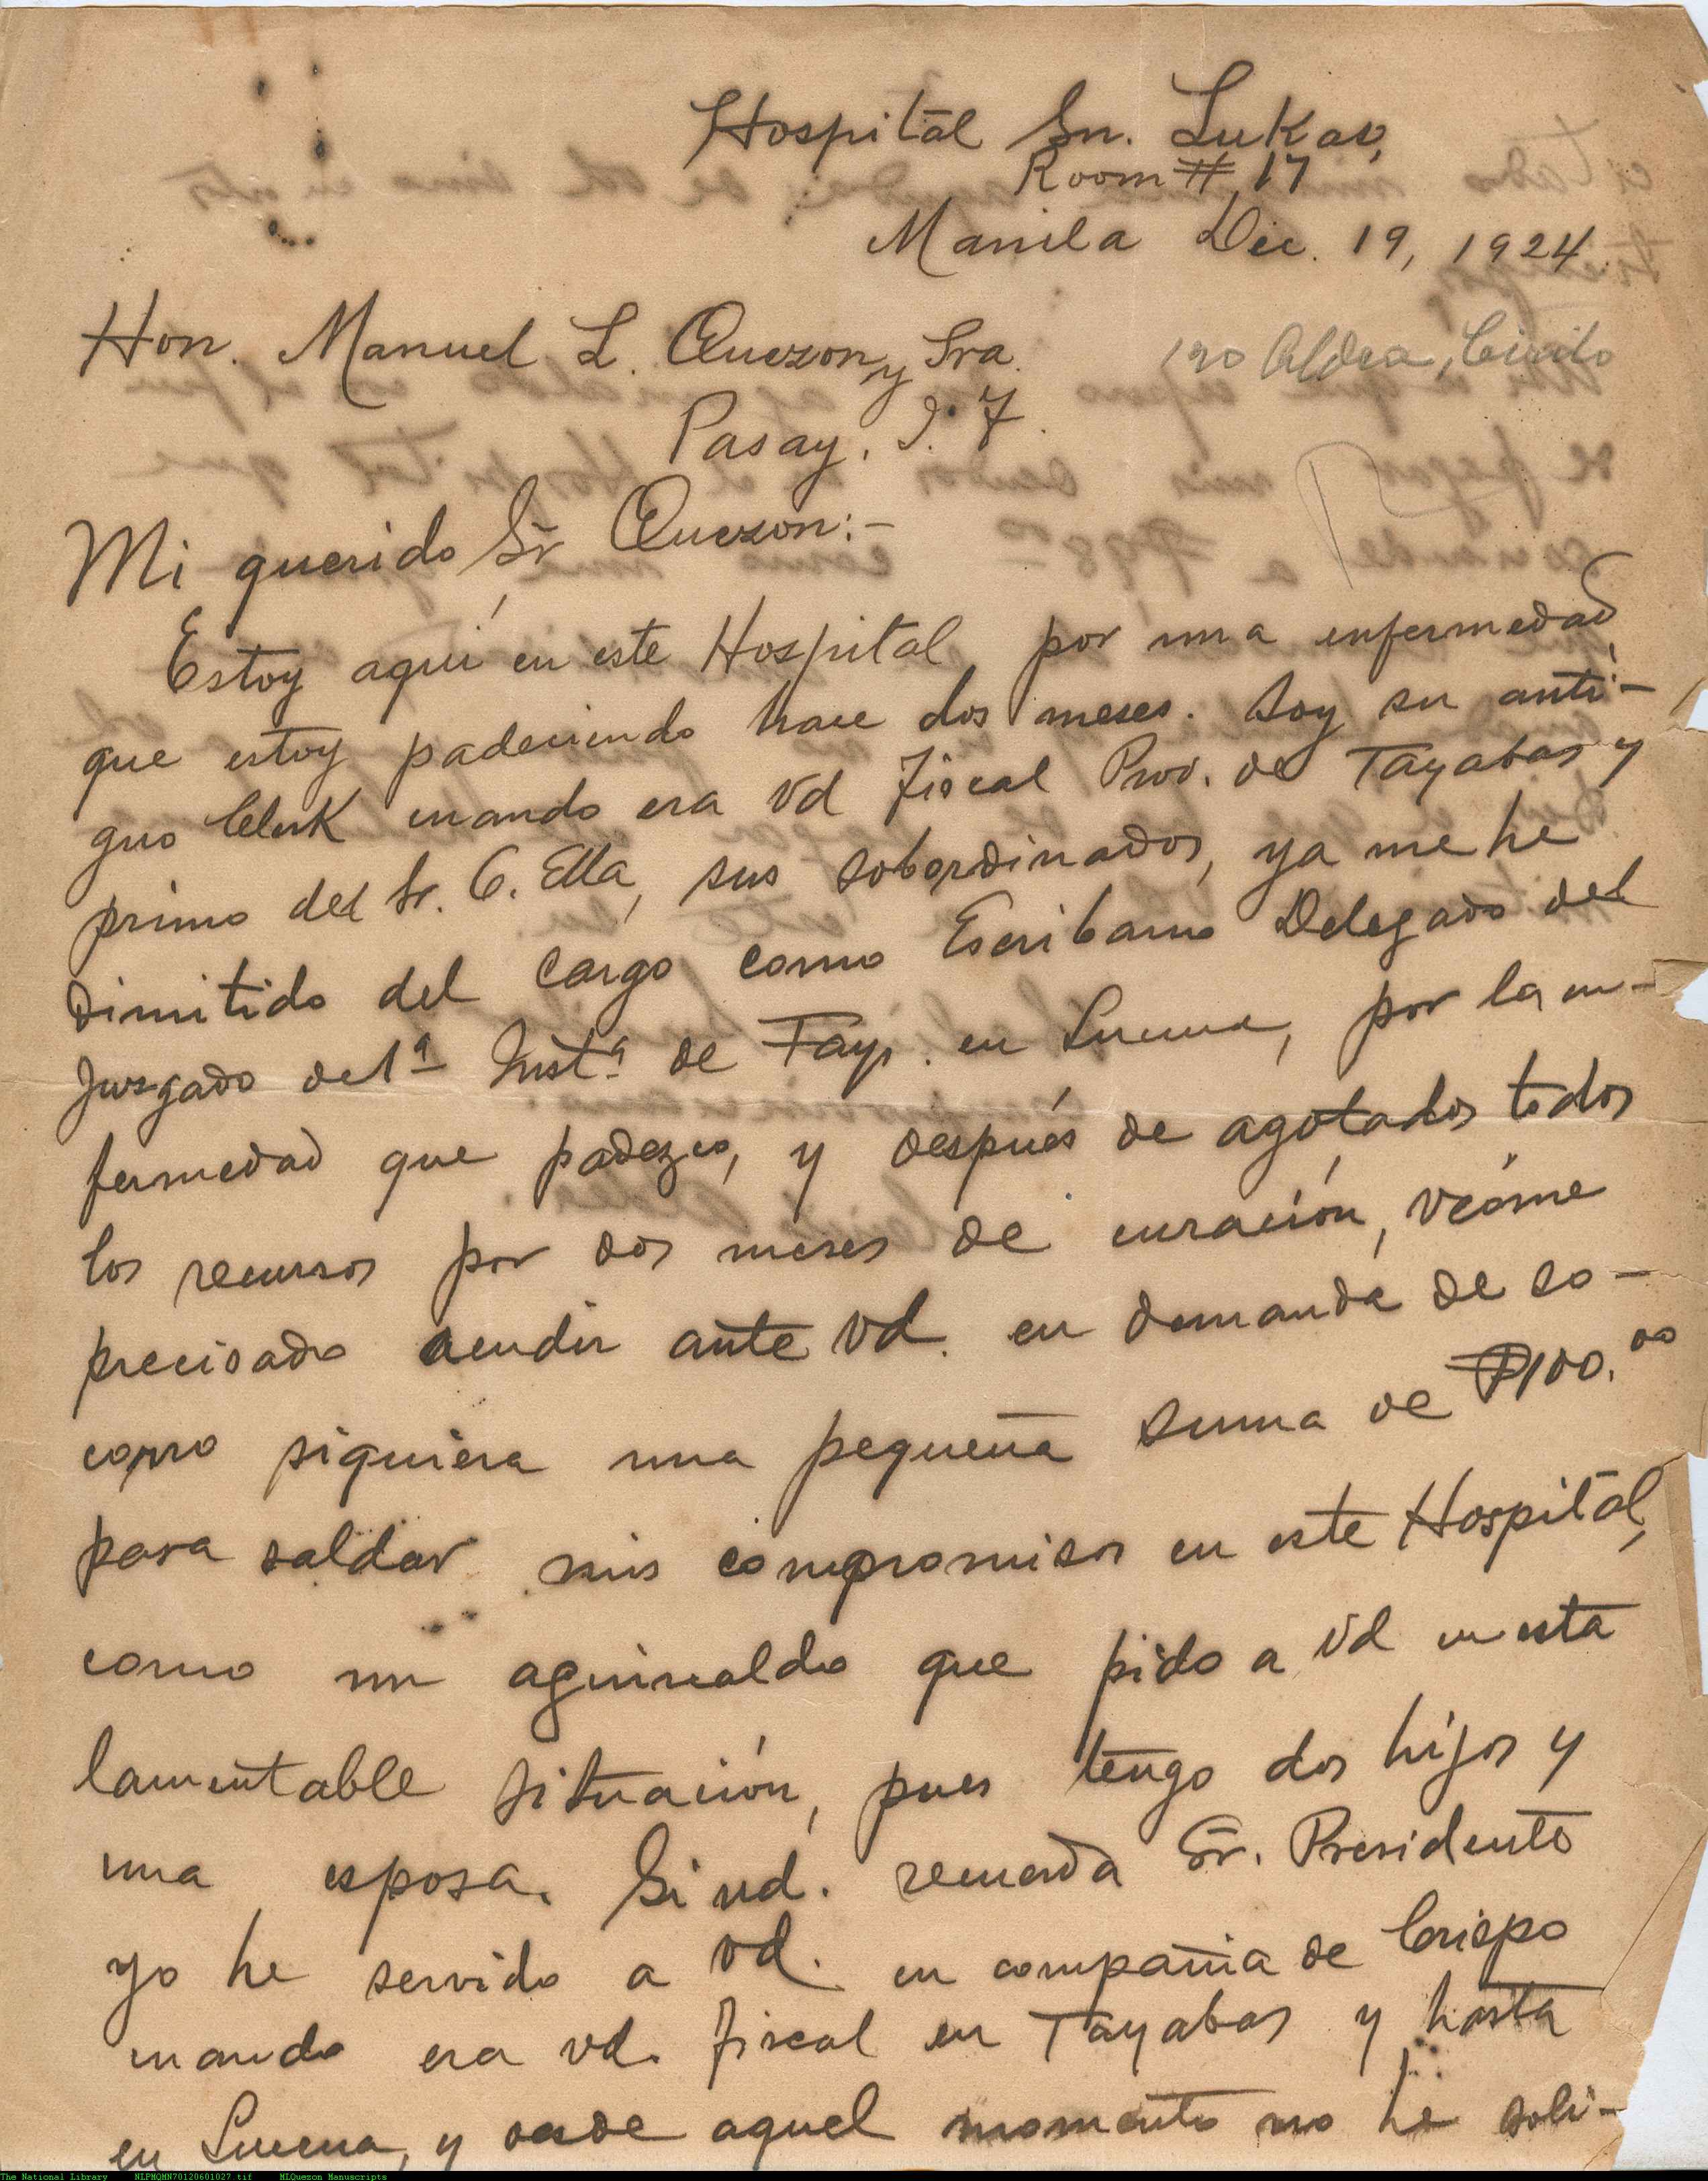 Hospital Sn. Lukas,
Room # 17
Manila Dec. 19, 1924.
Hon. Manuel L. Quezon y Sra.
Aldea, Cirilo
Pasay, I. F.
Mi querido Sr Quezon:-
Estoy aquí en este Hospital por una enfermedad
que estoy padeciendo hace dos meses. Soy su anti-
guo Clerk cuando era Vd Fiscal Prov. de Tayabas y
primo del Sr. C. Ella, sus sobordinados, ya me he
dimitido del cargo como Escribano Delegado del
Juzgado de 1ª Instª de Tay. en Lucena, por la en-
fermedad que padezco, y después de agotados todos
los recursos por dos meses de curación, veóme
precisado acudir ante Vd. en demanda de so-
corro siquiera una pequeña suma de ₱100.00
para saldar mis compromisos en este Hospital,
como un aguinaldo que pido a Vd en esta
lamentable situación, pues tengo dos hijos y
una esposa. Si vd. recuerda Sr. Presidente
yo he servido a vd. en compañia de Crispo
cuando era vd. fiscal en Tayabas y hasta
en Lucena, y desde aquel momento no he soli-
The National Library NLPMQMN70120601027.tif MLQuezon Manuscripts